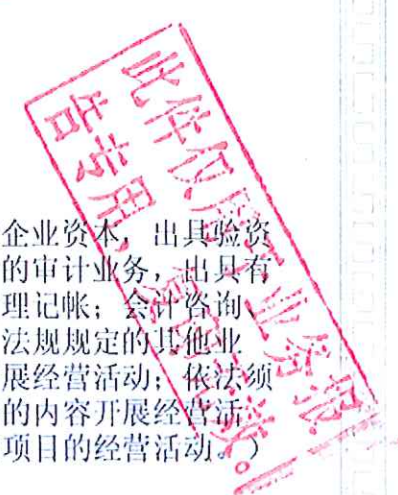 此件仅用于业务报
告专用，复印无效。
企业资本，出具验资
的审计业务，出具有
理记帐；会计咨询、
法规规定的其他业
展经营活动；依法须
的内容开展经营活
项目的经营活动。）